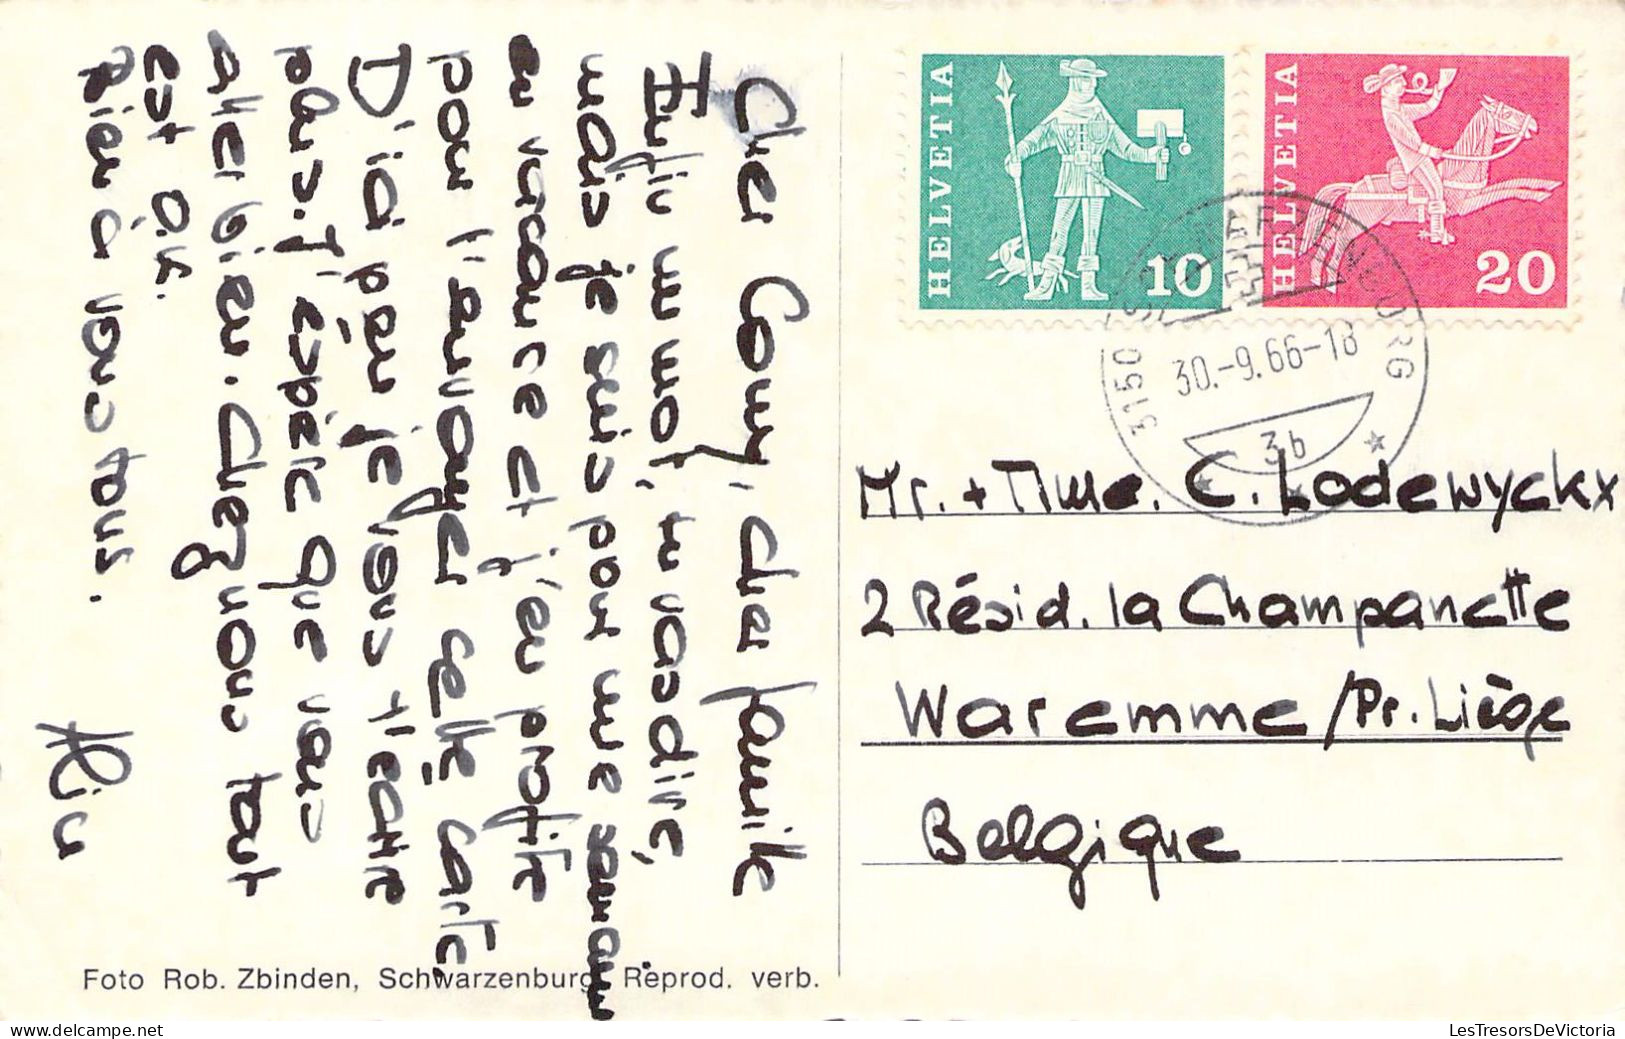 Cher Cony, cher famille
Enfin un mot, tu vas dire,
mais je suis pour une semaine
en vacance et j'eu profite
pour l'envoyer celte carte.
D'ici peu je vous ferai
plus. J'éspère que vous
aller bien. Chez nous tout
est ok.
Rien à vous tous.
Ria
HELVETIA
10
HELVETIA
20
3150 SCHWARZENBURG
30.-9.66-18
3b
Mr. + Mme. C. Lodewyckx
2 Résid. la Champanette
Waremme / Pr. Liège
Belgique
Foto Rob. Zbinden, Schwarzenburg Reprod. verb.
LesTresorsDeVictoria
www.delcampe.net